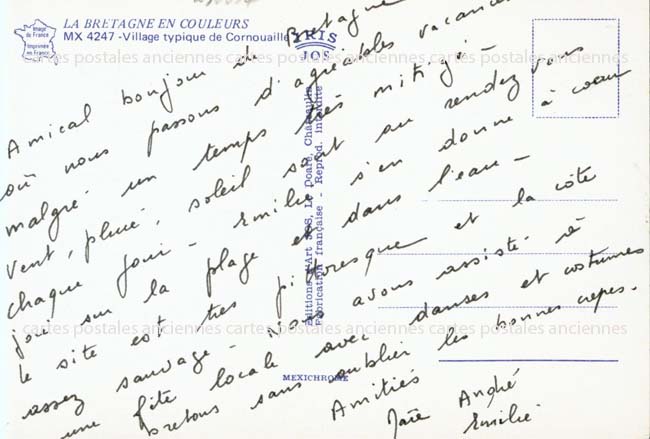 Image
de France
Imprimée
en France
LA BRETAGNE EN COULEURS
MX 4247 -Village typique de Cornouaille
IRIS
JOS
Amical bonjour de Bretagne
où nous passons d'agréables vacances
malgré un temps très mitigé -
vent, pluie, soleil sont au rendez vous
chaque jour - Emilie s'en donne à coeur
joie sur la plage et dans l'eau -
le site est très pittoresque et la côte
assez sauvage - Nous avons assisté à
une fête locale avec danses et costumes
bretons sans oublier les bonnes crêpes.
Amitiés
André
Emilie
Editions d'Art JOS, Le Doaré, Châteaulin
Fabrication française - Reprod. interdite
MEXICHROME
cartes postales anciennes cartes postales anciennes cartes postales anciennes